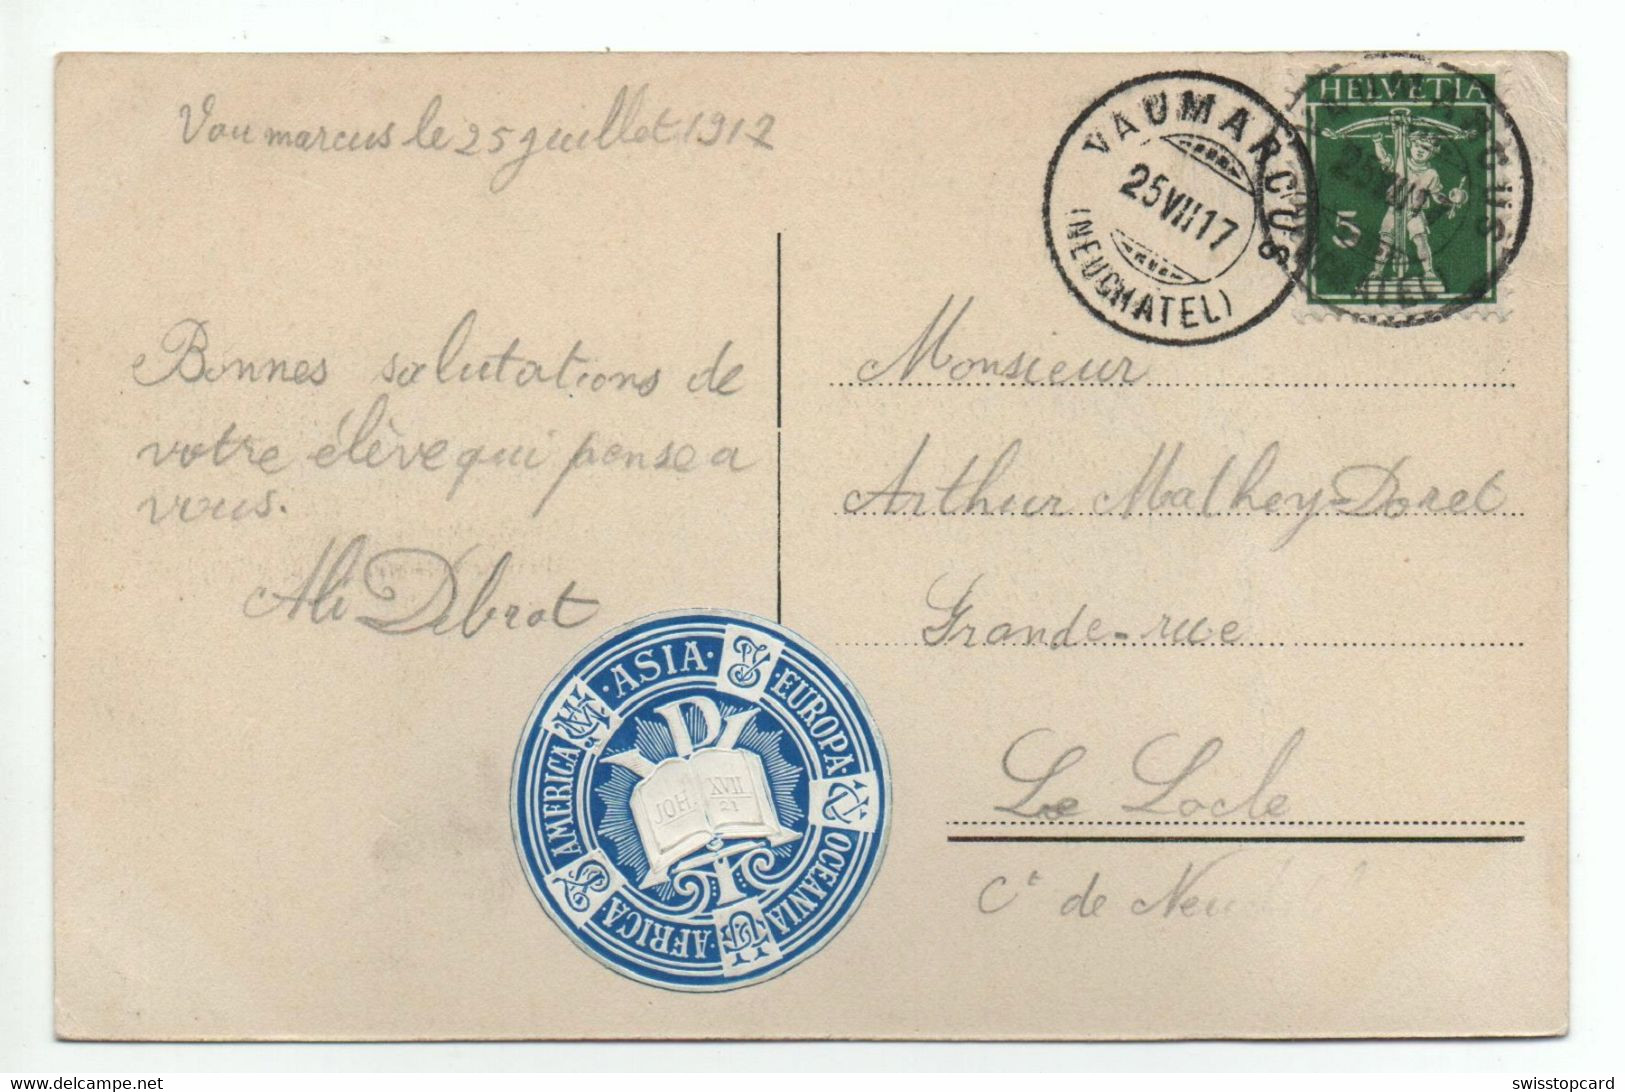 Vaumarcus le 25 juillet 1917
Bonnes salutations de
votre élève qui pense a
vous.
Ali Debrot
VAUMARCUS
25 VII 17
(NEUCHATEL)
HELVETIA
5
Monsieur
Arthur Mathey-Doret
Grande-rue
Le Locle
Ct de
ASIA · EUROPA · OCEANIA · AFRICA · AMERICA
JOH. XVII
21
swisstopcard